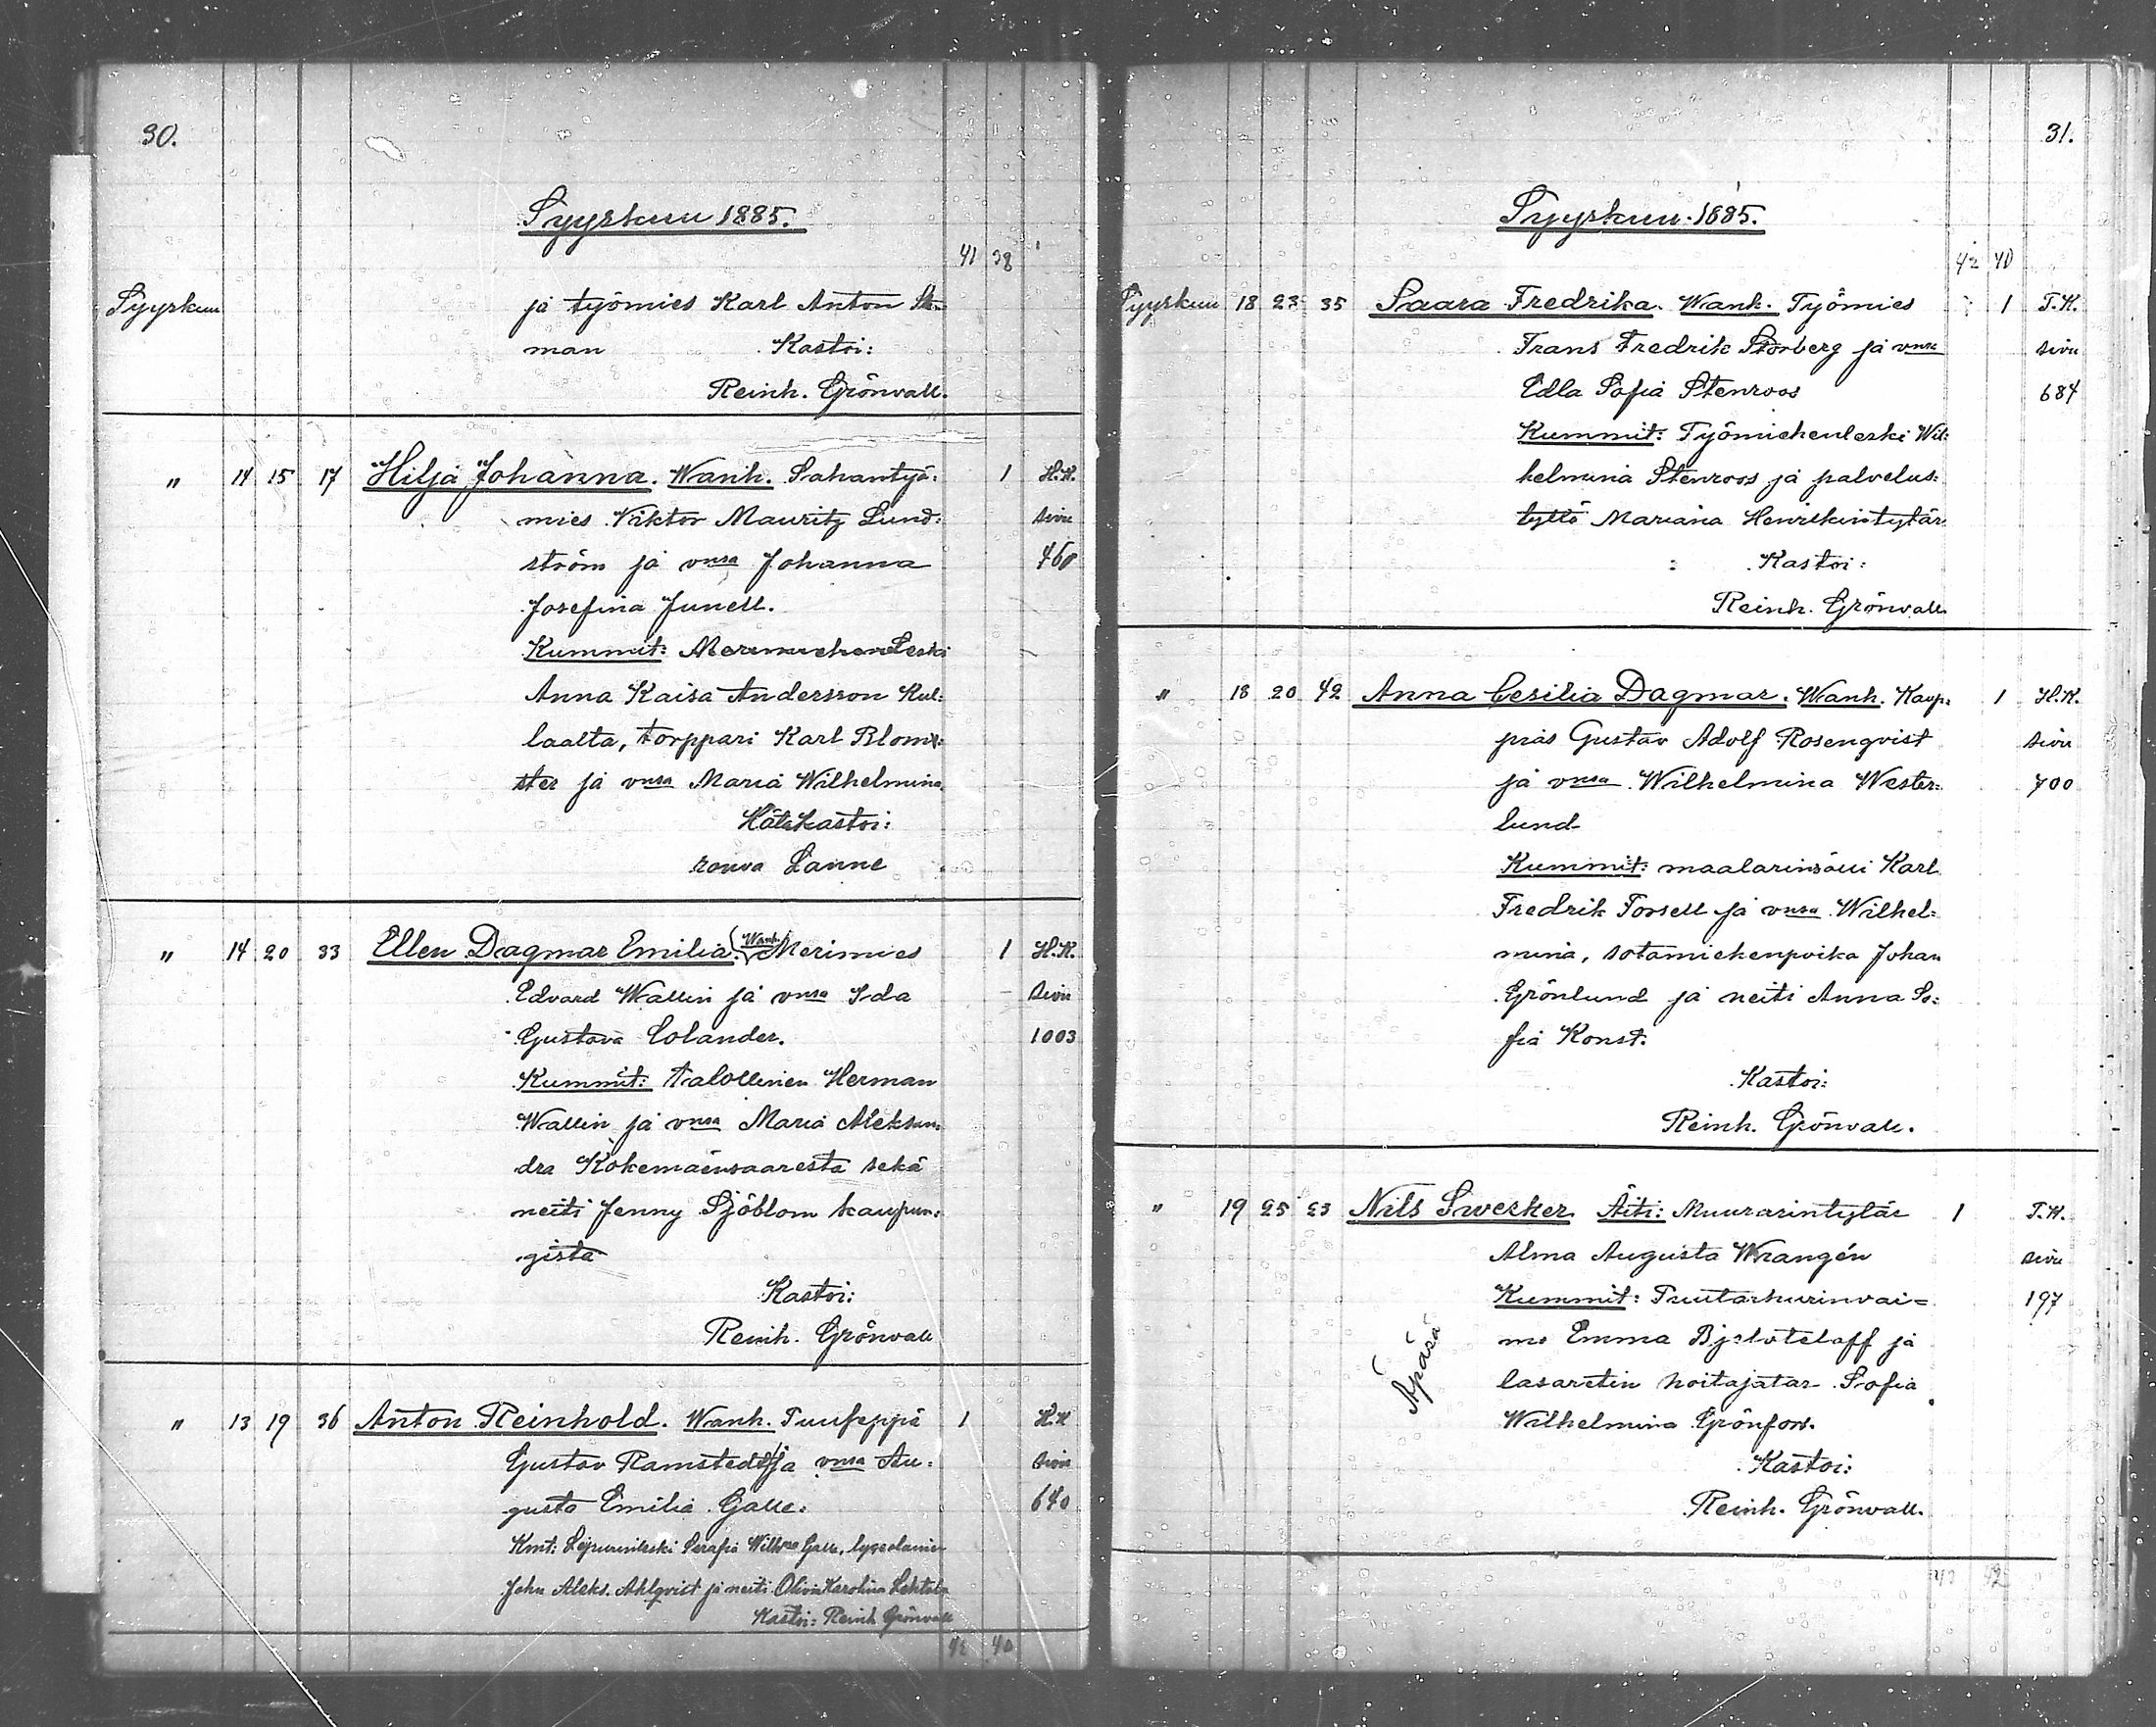 30.
Syyskuu 1885.
41 38
Syyskuu ja työmies Karl Anton
man Kastoi:
Reinh. Grönvall.
" 14 15 17 Hilja Johanna. Wanh. Sahantyö= 1 H.K.
mies Viktor Mauritz Lund= sivu
ström ja vnsa Johanna 460
Josefina Junell.
Kummit: Merimiehenleski
Anna Kaisa Andersson Kul=
laalta, torppari Karl Blom=
ster ja vnsa Maria Wilhelmina
Hätäkastoi:
rouva Lanne
" 14 20 33 Ellen Dagmar Emilia. (Wanh.) Merimies 1 H.K.
Edvard Wallin ja vnsa Ida sivu
Gustava Colander. 1003
Kummit: talollinen Herman
Wallin ja vnsa Maria Aleksan=
dra Kokemäensaaresta sekä
neiti Jenny Sjöblom kaupun=
gista
Kastoi:
Reinh. Grönvall
" 13 19 36 Anton Reinhold. Wanh. Puuseppä 1 H.K
Gustav Ramstedt ja vnsa Au= sivu
gusta Emilia Galle. 640
Kmt: Serafia Wilhna Galle,
John Aleks. Ahlqvist ja neiti Olivia Karolina
Kastoi: Reinh Grönvall
42 40
31.
Syyskuu 1885.
42 40
Syyskuu 18 23 35 Saara Fredrika. Wanh. Työmies 1 T.K.
Frans Fredrik Storberg ja vnsa sivu
Edla Sofia Stenroos 684
Kummit: Työmiehenleski Wil=
helmina Stenroos ja palvelus=
tyttö Mariana Henrikintytär
Kastoi:
Reinh. Grönvall
" 18 20 42 Anna Cesilia Dagmar. Wanh. Kaup= 1 H.K.
pias Gustav Adolf Rosenqvist sivu
ja vnsa Wilhelmina Wester= 700
lund
Kummit: maalarinsälli Karl
Fredrik Forsell ja vnsa Wilhel=
mina, sotamiehenpoika Johan
Grönlund ja neiti Anna So=
fia Konst.
Kastoi:
Reinh. Grönvall.
" 19 25 23 Nils Swerker Äiti: Muurarintytär 1 T.K.
Alma Augusta Wrangén sivu
Kummit: Puutarhurinvai= 197
mo Emma ja
lasaretin hoitajatar Sofia
Wilhelmina Grönfors.
Äpärä
Kastoi:
Reinh. Grönvall.
43 42